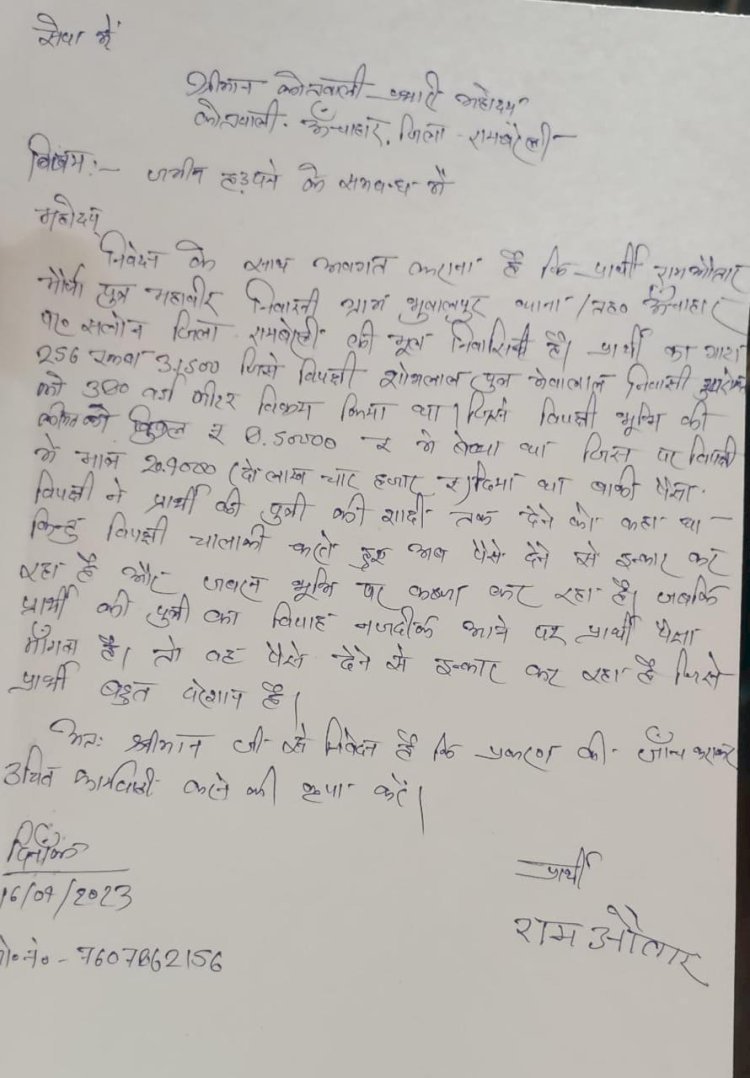 सेवा में
श्रीमान कोतवाली प्रभारी महोदय
कोतवाली - ऊँचाहार, जिला - रायबरेली
विषय :- जमीन हड़पने के सम्बन्ध में
महोदय
निवेदन के साथ अवगत कराना है कि प्रार्थी रामऔतार
मौर्या पुत्र महावीर निवासी ग्राम थाना / तह० ऊँचाहार
सलोन जिला रायबरेली की मूल निवासिनी है। प्रार्थी का गाटा
256 रकबा जिसे विपक्षी पुत्र मेवालाल निवासी
को 380 वर्ग मीटर विक्रय किया था। जिसे विपक्षी भूमि की
कीमत को रु में बेचा था जिस पर विपक्षी
ने मात्र (दो लाख चार हजार रु) दिया था बाकी पैसा
विपक्षी ने प्रार्थी की पुत्री की शादी तक देने को कहा था -
किन्तु विपक्षी चालाकी करते हुए अब पैसे देने से इन्कार कर
रहा है और जबरन भूमि पर कब्जा कर रहा है। जबकि
प्रार्थी की पुत्री का विवाह नजदीक आने पर प्रार्थी पैसा
माँगता है। तो वह पैसे देने से इन्कार कर रहा है जिसे
प्रार्थी बहुत परेशान है।
अतः श्रीमान जी से निवेदन है कि प्रकरण की जाँच कराकर
उचित कार्यवाही करने की कृपा करें।
दिनाँक
16/04/2023
प्रार्थी
राम औतार
मो०नं० - 7607862156